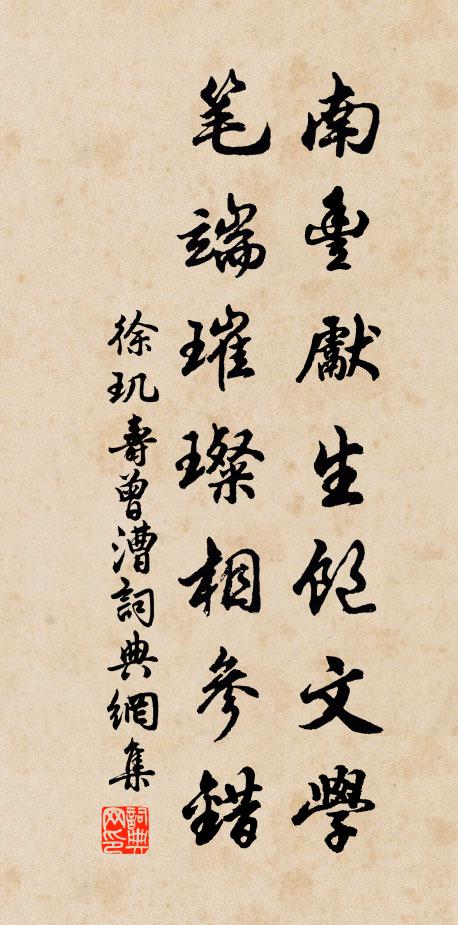 南豊獻生飽文學
笔端璀璨相參錯
徐玑壽曾漕詞典網集
詞典网印